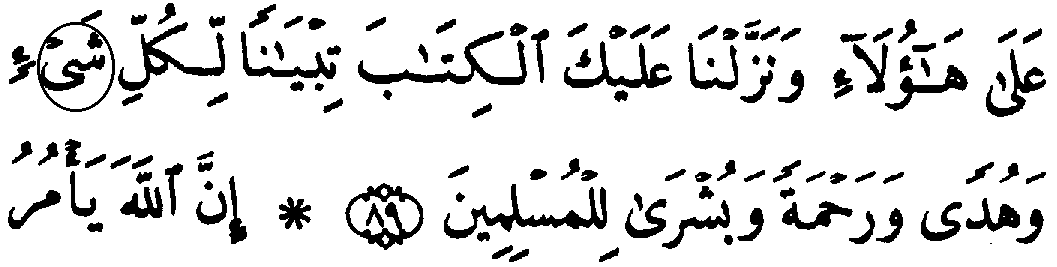 عَلَىٰ هَـٰٓؤُلَآءِ وَنَزَّلْنَا عَلَيْكَ ٱلْكِتَـٰبَ تِبْيَـٰنًا لِّـكُلِّ شَىْءٍ
وَهُدًى وَرَحْمَةً وَبُشْرَىٰ لِلْمُسْلِمِينَ ٨٩ * إِنَّ ٱللَّهَ يَأْمُرُ